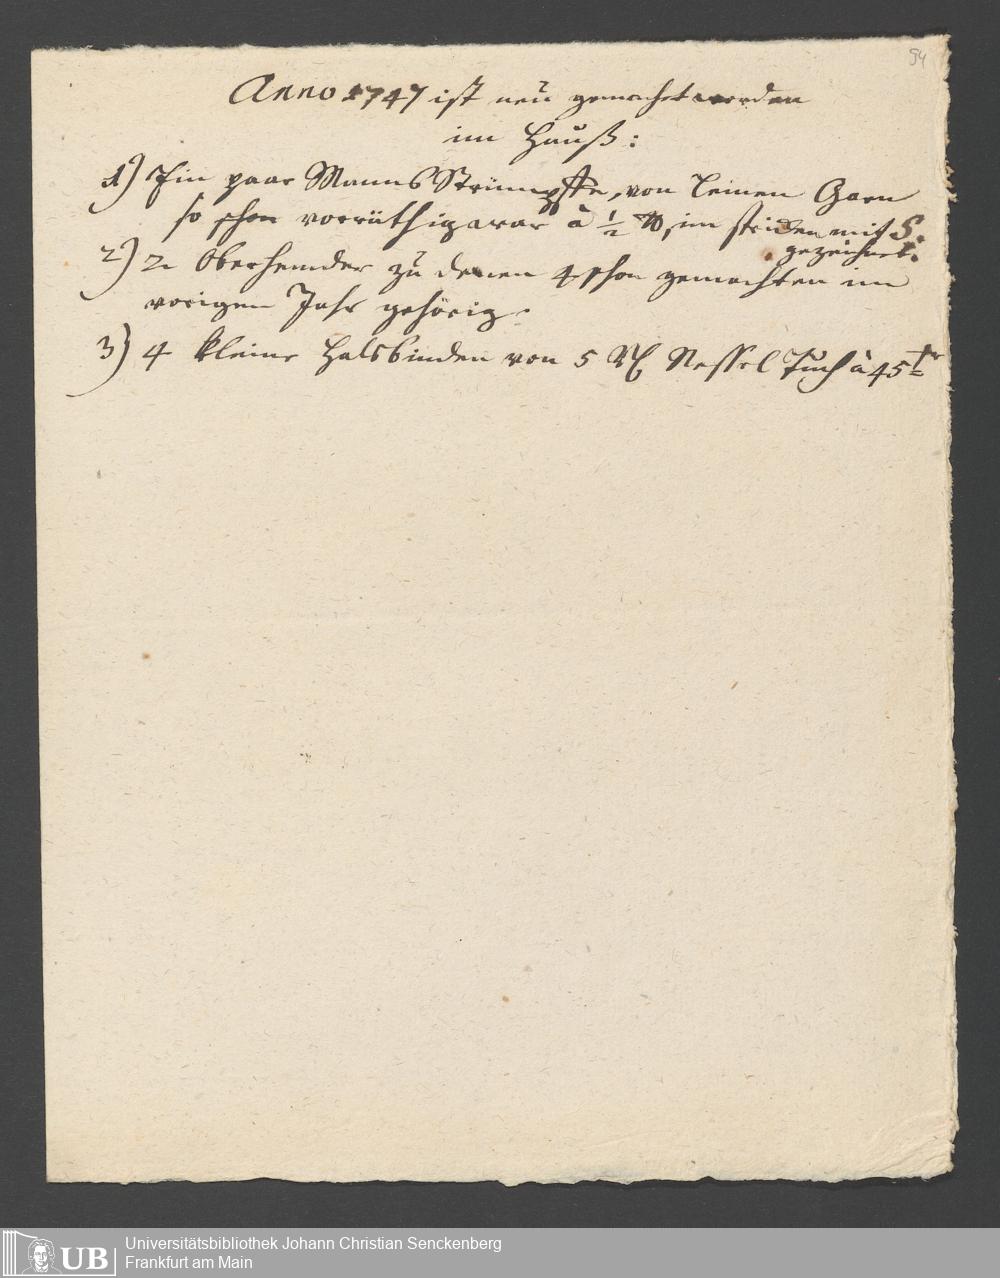 94
Anno 1747 ist neu gemacht worden
im Hauß:
1) Ein paar Manns Strümpffe, von Leinen Garn
so schon vorräthig war à ½ ℔, im stricken mit S.
gezeichnet.
2) 2 Oberhemder zu denen 4 schon gemachten im
vorigen Jahr gehörig.
3) 4 kleine Halsbinden von 5 Nessel Tuch à 45
UB
Universitätsbibliothek Johann Christian Senckenberg
Frankfurt am Main